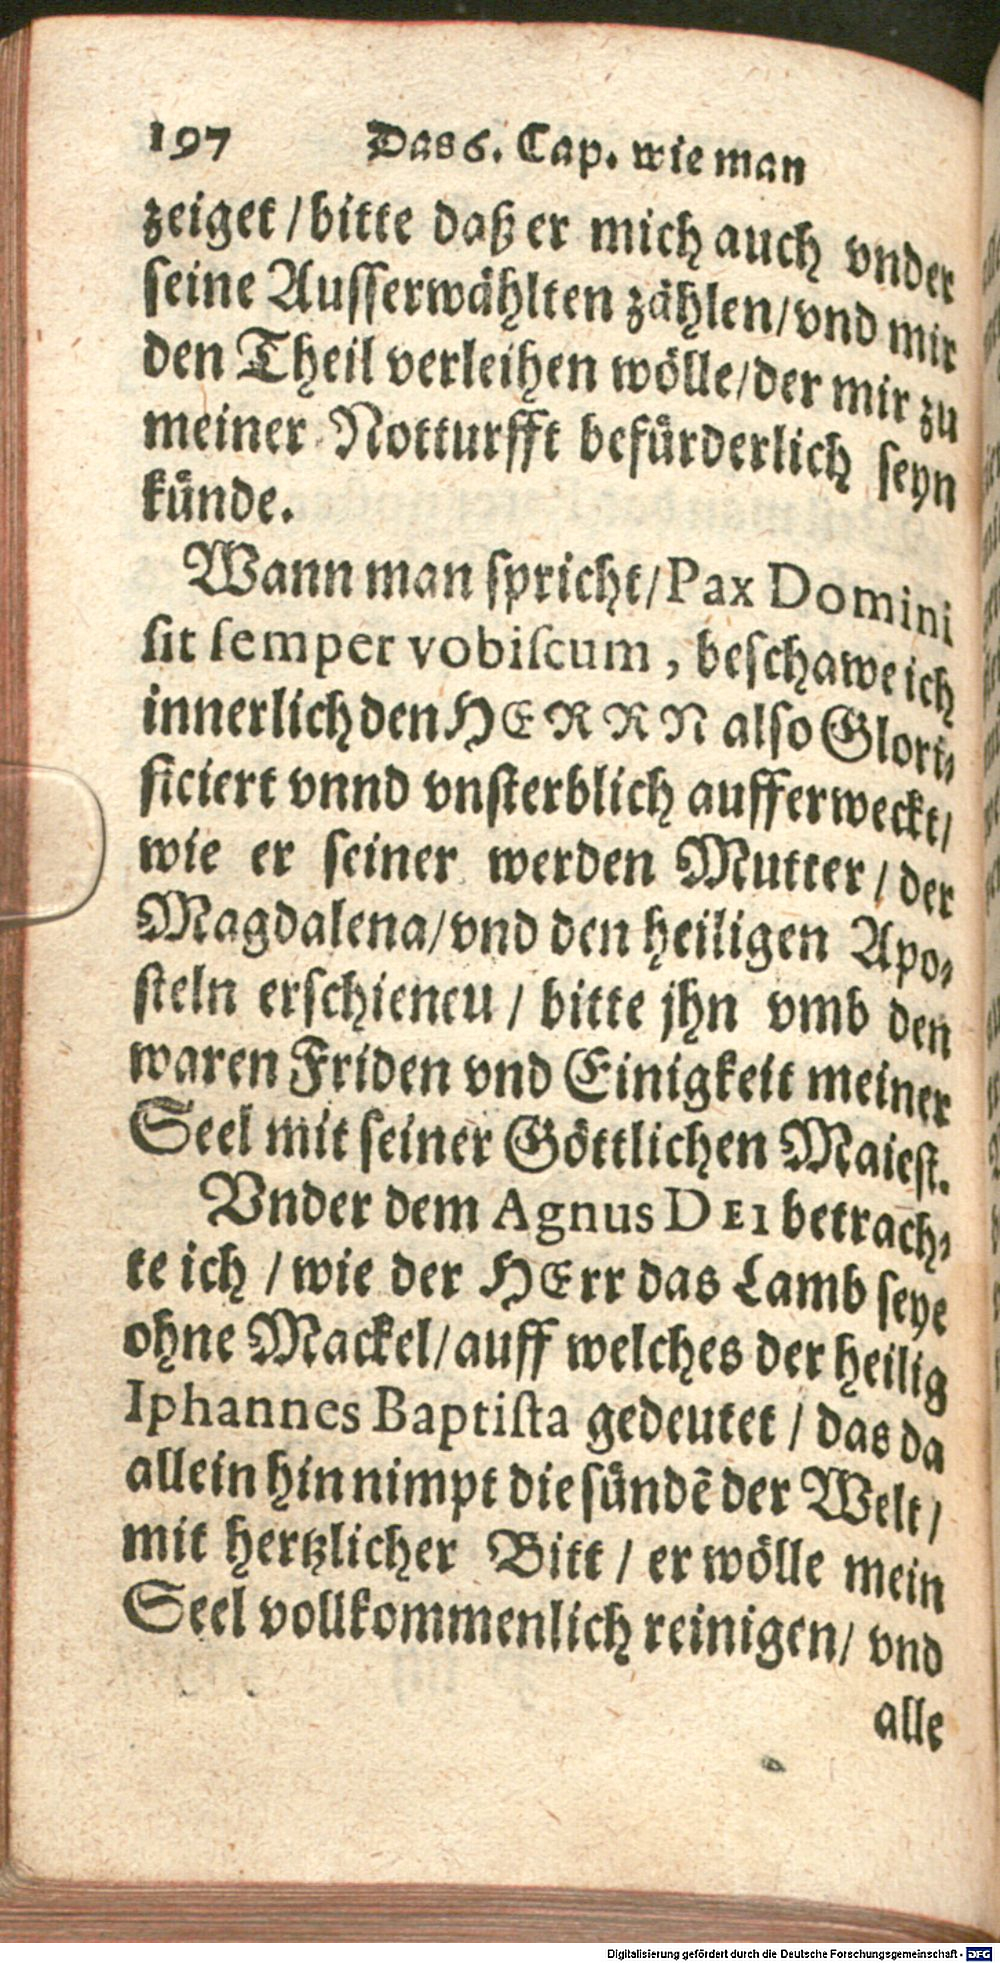 197 Das 6. Cap. wie man
zeiget / bitte daß er mich auch vnder
seine Ausserwählten zählen / vnd mir
den Theil verleihen wölle / der mir zu
meiner Notturfft befürderlich seyn
künde.
Wann man spricht / Pax Domini
sit semper vobiscum, beschawe ich
innerlich den HERRN also Glori-
ficiert vnnd vnsterblich aufferweckt /
wie er seiner werden Mutter / der
Magdalena / vnd den heiligen Apo-
steln erschieneu / bitte jhn vmb den
waren Friden vnd Einigkeit meiner
Seel mit seiner Göttlichen Maiest.
Vnder dem Agnus DEI betrach-
te ich / wie der HErr das Lamb seye
ohne Mackel / auff welches der heilig
Iphannes Baptista gedeutet / das da
allein hin nimpt die sündẽ der Welt /
mit hertzlicher Bitt / er wölle mein
Seel vollkommenlich reinigen / vnd
alle
Digitalisierung gefördert durch die Deutsche Forschungsgemeinschaft - DFG